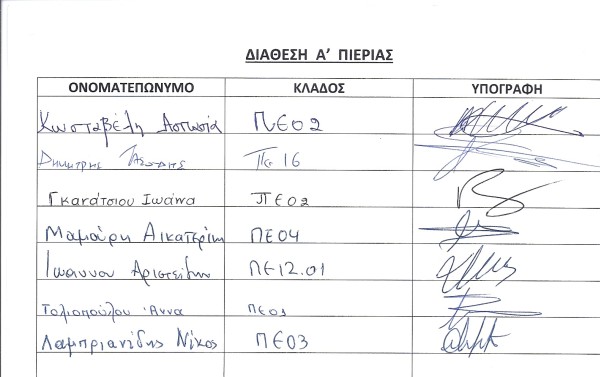 ΔΙΑΘΕΣΗ Α' ΠΙΕΡΙΑΣ
ΟΝΟΜΑΤΕΠΩΝΥΜΟ ΚΛΑΔΟΣ ΥΠΟΓΡΑΦΗ
Κωσταβέλη Ασπασία ΠΕ02
Δημήτρης ΠΕ 16
Γκανάτσιου Ιωάννα ΠΕ02
Μαμάρη Αικατερίνη ΠΕ04
Ιωάννου Αριστείδης ΠΕ12.01
Τολιοπούλου Άννα ΠΕ01
Λαμπριανίδης Νίκος ΠΕ03